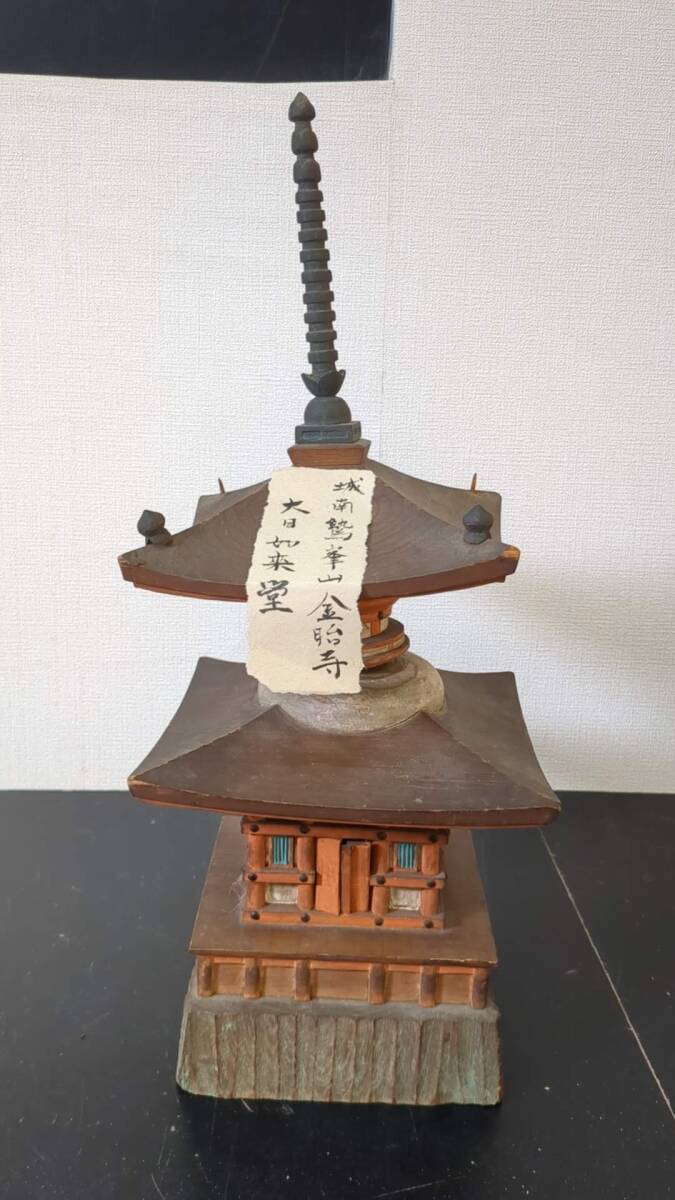 城南鷲峯山金胎寺
大日如来堂